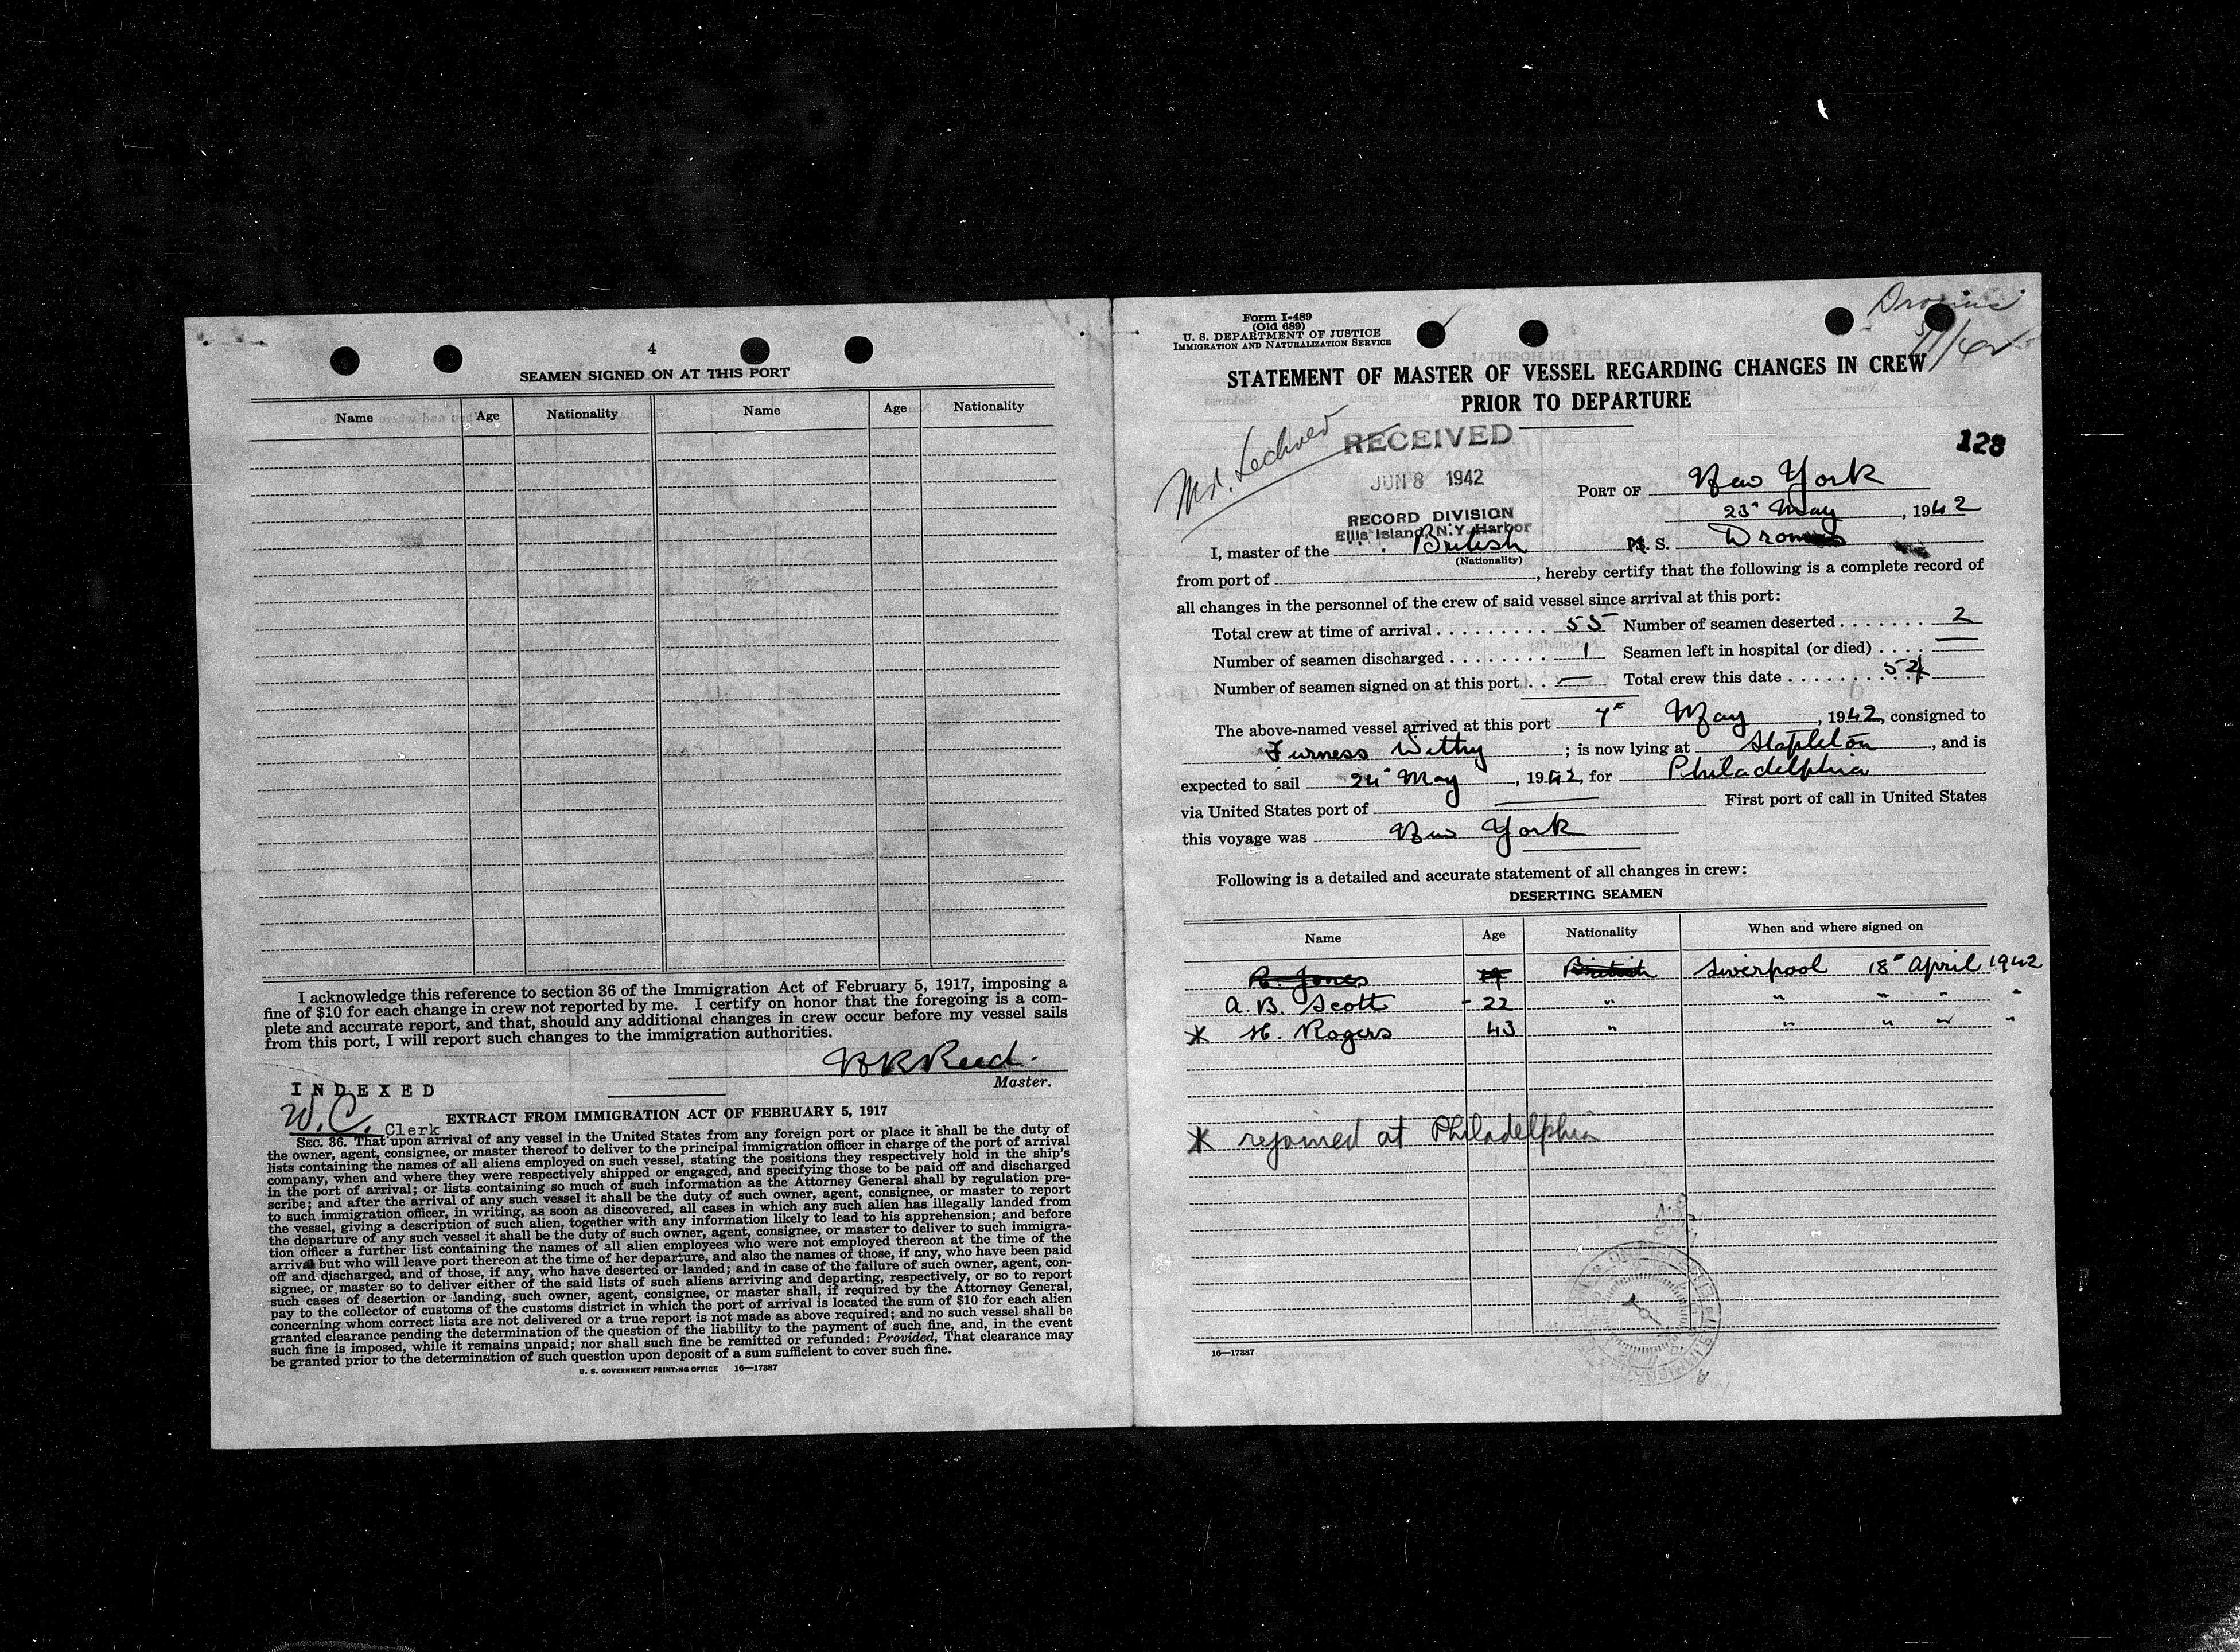 4
SEAMEN SIGNED ON AT THIS PORT
Name Age Nationality Name Age Nationality
I acknowledge this reference to section 36 of the Immigration Act of February 5, 1917, imposing a
fine of $10 for each change in crew not reported by me. I certify on honor that the foregoing is a com-
plete and accurate report, and that, should any additional changes in crew occur before my vessel sails
from this port, I will report such changes to the immigration authorities.
Reed.
Master.
INDEXED
W. C. Clerk
EXTRACT FROM IMMIGRATION ACT OF FEBRUARY 5, 1917
SEC. 36. That upon arrival of any vessel in the United States from any foreign port or place it shall be the duty of
the owner, agent, consignee, or master thereof to deliver to the principal immigration officer in charge of the port of arrival
lists containing the names of all aliens employed on such vessel, stating the positions they respectively hold in the ship's
company, when and where they were respectively shipped or engaged, and specifying those to be paid off and discharged
in the port of arrival; or lists containing so much of such information as the Attorney General shall by regulation pre-
scribe; and after the arrival of any such vessel it shall be the duty of such owner, agent, consignee, or master to report
to such immigration officer, in writing, as soon as discovered, all cases in which any such alien has illegally landed from
the vessel, giving a description of such alien, together with any information likely to lead to his apprehension; and before
the departure of any such vessel it shall be the duty of such owner, agent, consignee, or master to deliver to such immigra-
tion officer a further list containing the names of all alien employees who were not employed thereon at the time of the
arrival but who will leave port thereon at the time of her departure, and also the names of those, if any, who have been paid
off and discharged, and of those, if any, who have deserted or landed; and in case of the failure of such owner, agent, con-
signee, or master so to deliver either of the said lists of such aliens arriving and departing, respectively, or so to report
such cases of desertion or landing, such owner, agent, consignee, or master shall, if required by the Attorney General,
pay to the collector of customs of the customs district in which the port of arrival is located the sum of $10 for each alien
concerning whom correct lists are not delivered or a true report is not made as above required; and no such vessel shall be
granted clearance pending the determination of the question of the liability to the payment of such fine, and, in the event
such fine is imposed, while it remains unpaid; nor shall such fine be remitted or refunded: Provided, That clearance may
be granted prior to the determination of such question upon deposit of a sum sufficient to cover such fine.
U. S. GOVERNMENT PRINTING OFFICE 16—17387
Form I-489
(Old 689)
U. S. DEPARTMENT OF JUSTICE
IMMIGRATION AND NATURALIZATION SERVICE
STATEMENT OF MASTER OF VESSEL REGARDING CHANGES IN CREW
PRIOR TO DEPARTURE
RECEIVED
128
JUN 8 1942
PORT OF New York
RECORD DIVISION
23" May, 1942
Ellis Island, N.Y. Harbor
I, master of the British S. Dromus
(Nationality)
from port of , hereby certify that the following is a complete record of
all changes in the personnel of the crew of said vessel since arrival at this port:
Total crew at time of arrival 55 Number of seamen deserted 2
Number of seamen discharged 1 Seamen left in hospital (or died) —
Number of seamen signed on at this port — Total crew this date
The above-named vessel arrived at this port May, 1942, consigned to
Furness Withy; is now lying at Stapleton, and is
expected to sail 24" May, 1942, for Philadelphia
via United States port of — First port of call in United States
this voyage was New York
Following is a detailed and accurate statement of all changes in crew:
DESERTING SEAMEN
Name Age Nationality When and where signed on
Jones 19 British Liverpool 18" April 1942
A. B. Scott 22 " " " " "
* H. Rogers 43 " " " " "
* rejoined at Philadelphia
16—17387